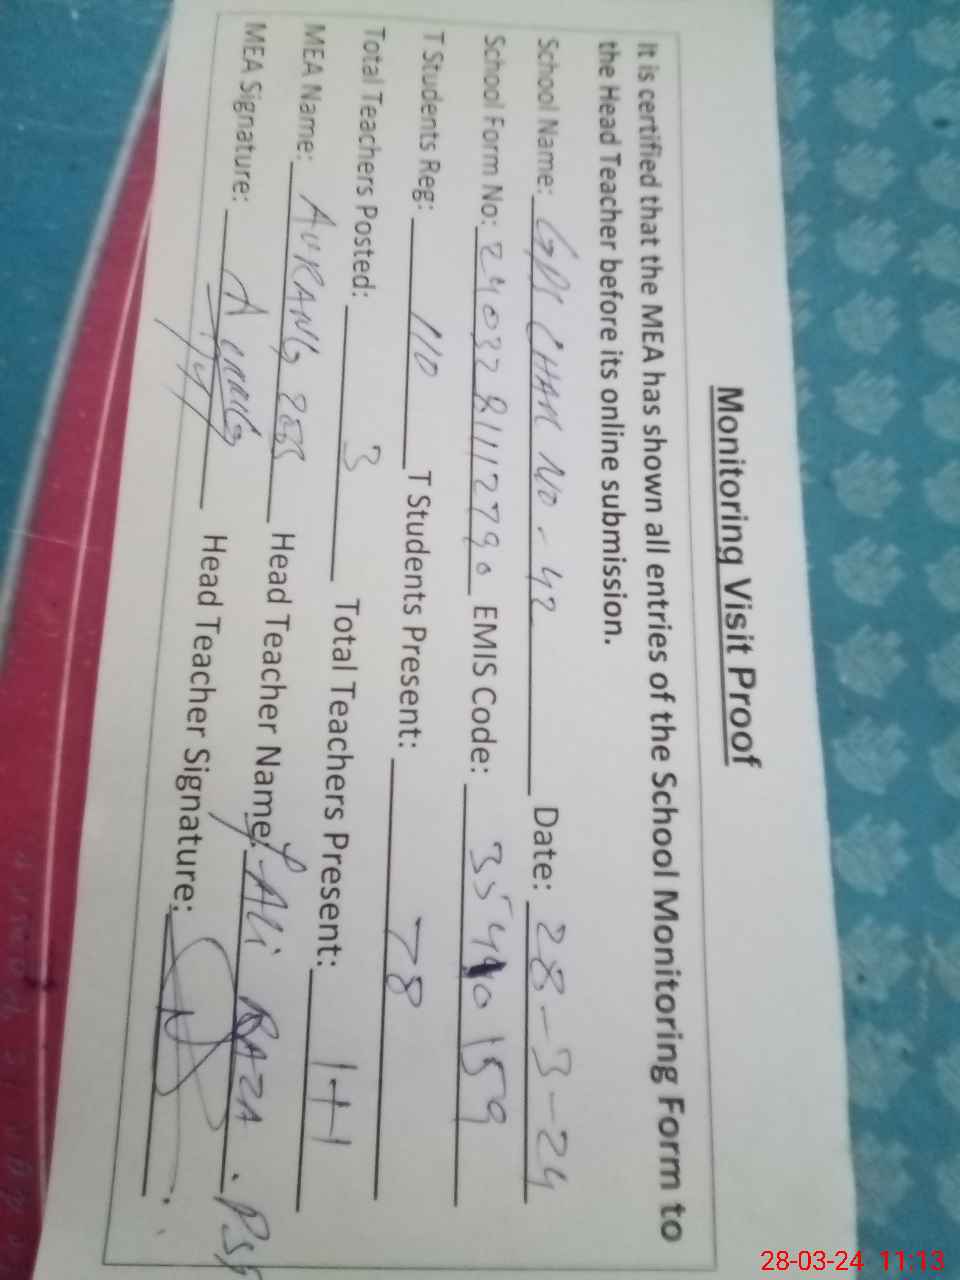 Monitoring Visit Proof
It is certified that the MEA has shown all entries of the School Monitoring Form to
the Head Teacher before its online submission.
School Name: GPS CHAK NO - 42 Date: 28-3-24
School Form No: EMIS Code: 35440159
T Students Reg: 110 T Students Present: 78
Total Teachers Posted: 3 Total Teachers Present: 1+1
MEA Name: AURANG ZEB Head Teacher Name: ALi RAZA . PST
MEA Signature: Head Teacher Signature:
28-03-24 11:13